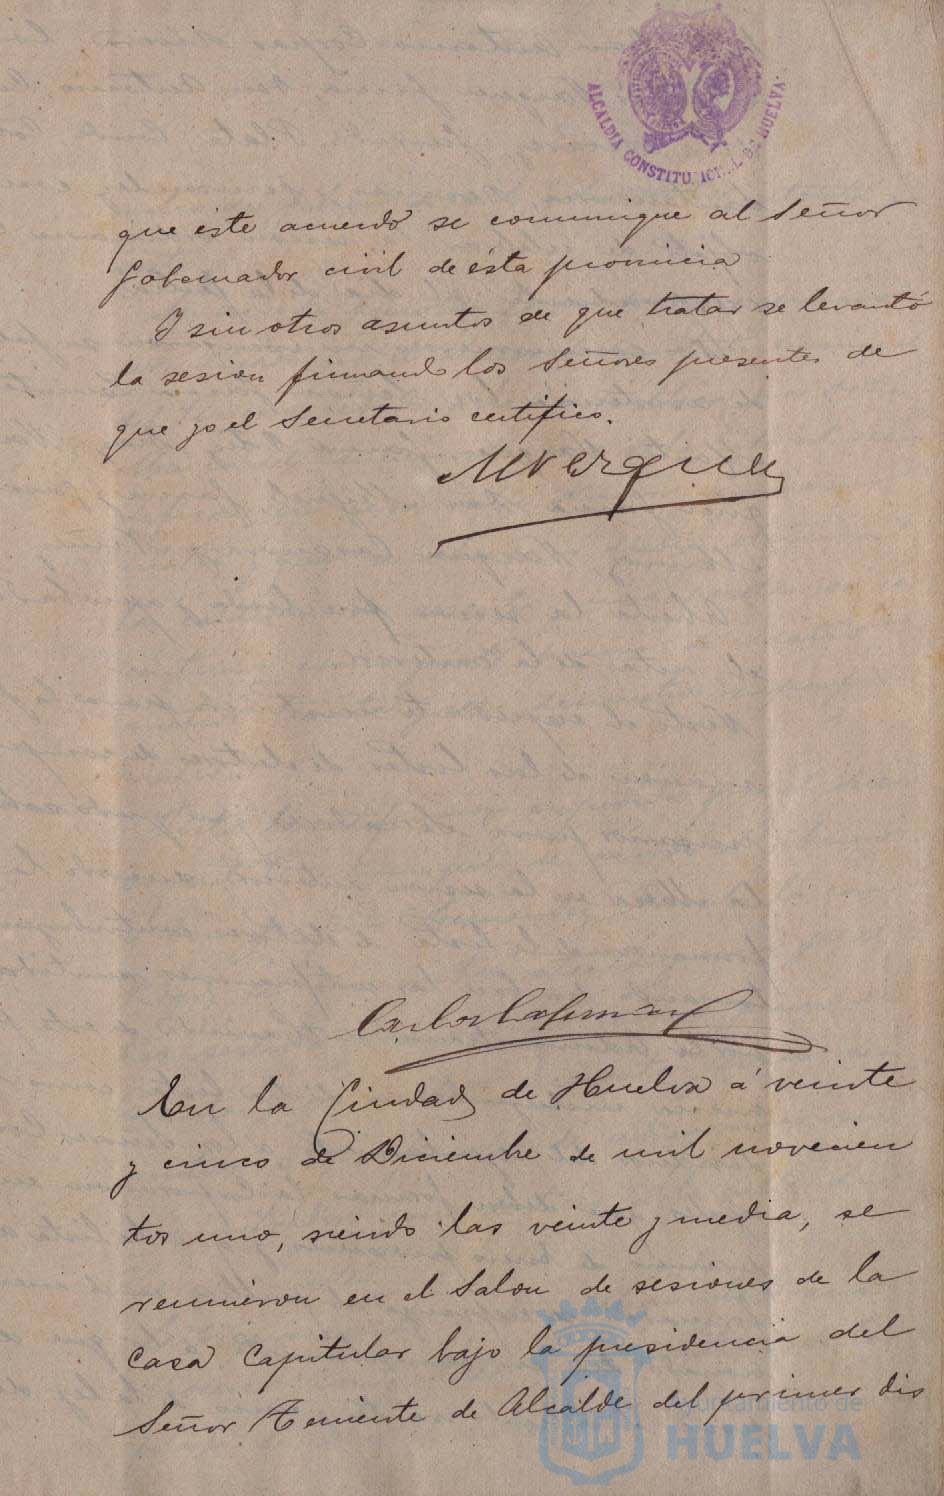 ALCALDIA CONSTITUCIONAL DE HUELVA
que éste acuerdo se comunique al Señor
Gobernador civil de ésta provincia
Y sin otros asuntos de que tratar se levantó
la sesion firmando los Señores presentes de
que yo el Secretario certifico.
En la Ciudad de Huelva á veinte
y cinco de Diciembre de mil novecien
tos uno, siendo las veinte y media, se
reunieron en el Salon de sesiones de la
Casa Capitular bajo la presidencia del
Señor Teniente de Alcalde del primer dis
Ayuntamiento de
HUELVA